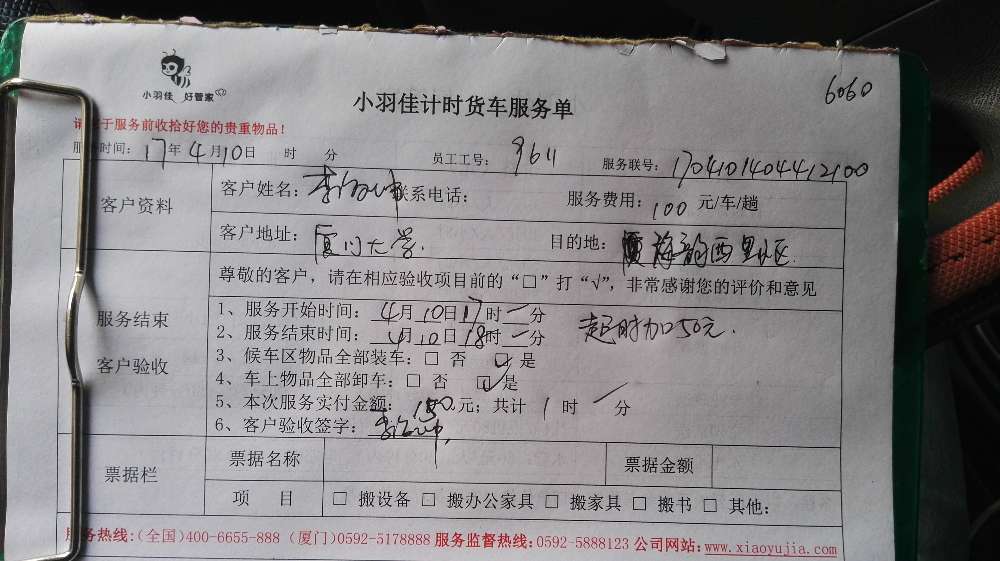 小羽佳 好管家
小羽佳计时货车服务单
6060
请您于服务前收拾好您的贵重物品！
服务时间：17年4月10日 时 分 员工工号：9611 服务联号：1704101404412100
客户资料
客户姓名：李 联系电话： 服务费用：100元/车/趟
客户地址：厦门大学. 目的地：海韵西里小区.
服务结束
客户验收
尊敬的客户，请在相应验收项目前的“□”打“√”，非常感谢您的评价和意见
1、服务开始时间：4月10日17时 分
2、服务结束时间：4月10日18时 分
超时加50元.
3、候车区物品全部装车：□ 否 ☑ 是
4、车上物品全部卸车：□ 否 ☑ 是
5、本次服务实付金额：元；共计 1 时 分
6、客户验收签字：李
票据栏
票据名称 票据金额
项 目 □ 搬设备 □ 搬办公家具 □ 搬家具 □ 搬书 □ 其他：
服务热线:(全国)400-6655-888 (厦门)0592-5178888 服务监督热线:0592-5888123 公司网站:www.xiaoyujia.com